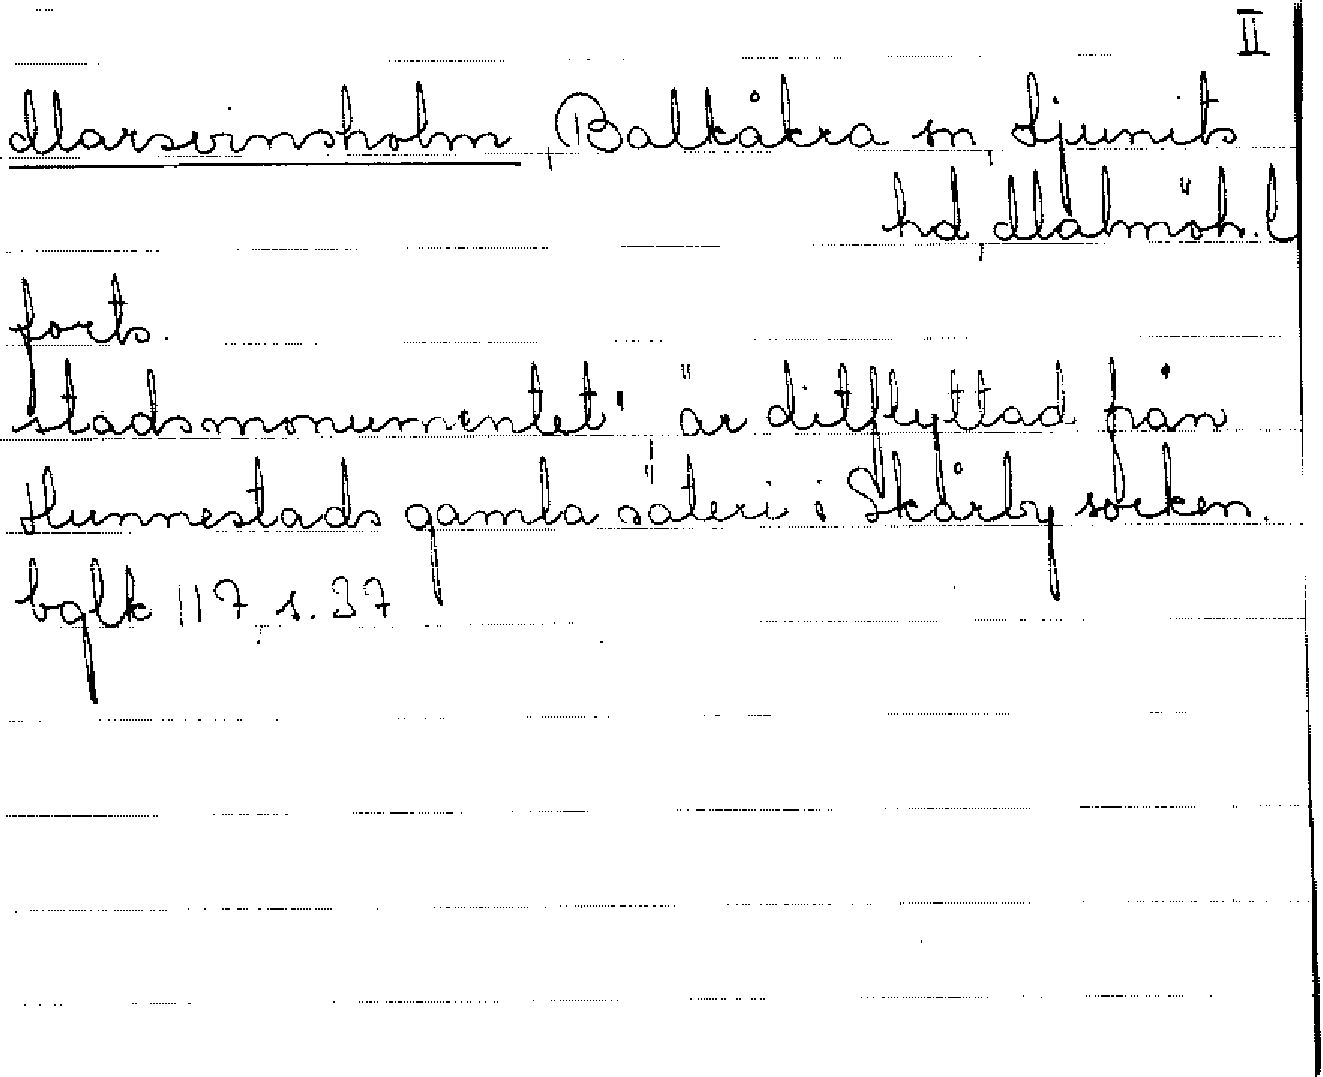 II
Marsvinsholm, Balkåkra sn, Ljunits
hd, Malmöh. l
forts.
stadsmonumentet" är ditflyttad från
Hunnestads gamla säteri i Skårby socken.
bglk 117, s. 37